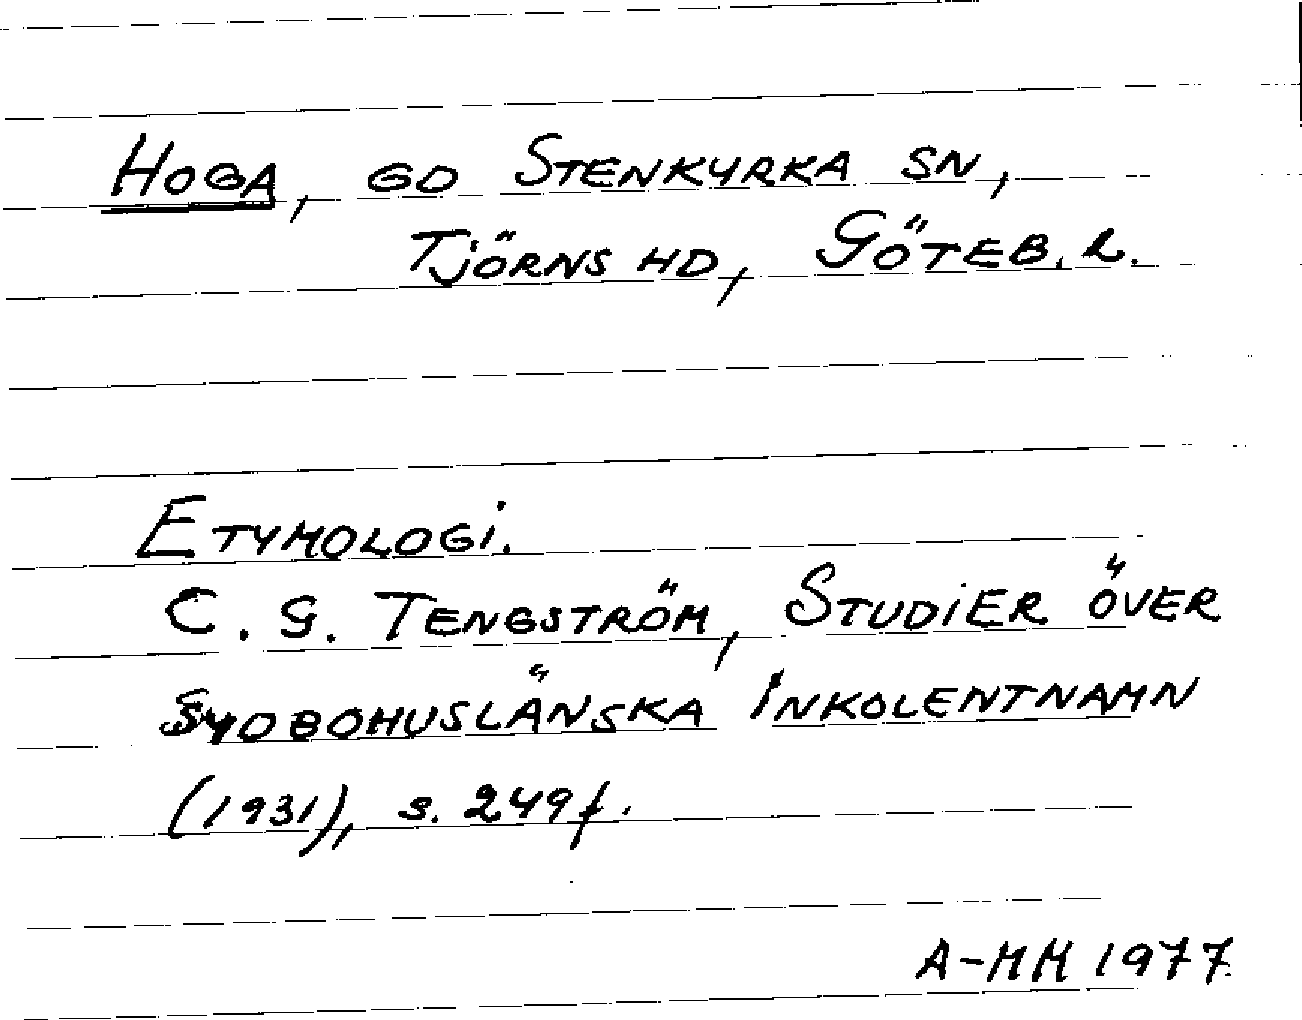 HOGA, GD STENKYRKA SN,
TJÖRNS HD, GÖTEB. L.
ETYMOLOGI.
C. G. TENGSTRÖM, STUDIER ÖVER
SYDBOHUSLÄNSKA INKOLENTNAMN
(1931), s. 249f.
A-MM 1977